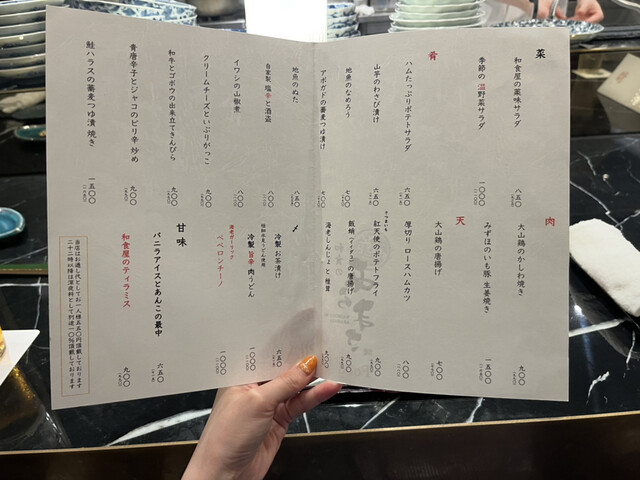 菜
和食屋の薬味サラダ
八〇〇
季節の 温 野菜サラダ
一〇〇〇
肴
ハムたっぷりポテトサラダ
六五〇
山芋のわさび漬け
六五〇
地魚のなめろう
七〇〇
アボガドの蕎麦つゆ漬け
七〇〇
地魚のぬた
八五〇
自家製 塩辛と酒盗
八〇〇
イワシの山椒煮
八〇〇
クリームチーズといぶりがっこ
九〇〇
和牛とゴボウの出来立てきんぴら
九〇〇
青唐辛子とジャコのピリ辛 炒め
九〇〇
鮭ハラスの蕎麦つゆ漬 焼き
一五〇〇
肉
大山鶏のかしわ焼き
九〇〇
みずほのいも豚 生姜焼き
一五〇〇
天
大山鶏の唐揚げ
七〇〇
厚切り ロースハムカツ
八〇〇
紅天使のポテトフライ
九〇〇
飯蛸(イイダコ)の唐揚げ
九〇〇
海老しんじょ と 椎茸
九〇〇
〆
冷製 お茶漬け
六五〇
冷製 旨辛 肉うどん
一〇〇〇
海老ガーリック
ペペロンチーノ
一〇〇〇
甘味
バニラアイスとあんこの最中
六五〇
和食屋のティラミス
九〇〇
当店はお通し代としてお一人様五五〇円頂戴しております
二十二時以降は深夜料として別途一〇%頂戴しております